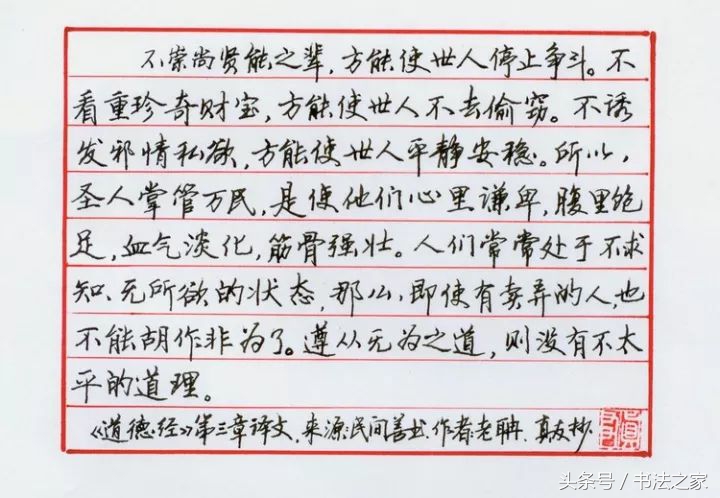 不崇尚贤能之辈，方能使世人停止争斗。不
看重珍奇财宝，方能使世人不去偷窃。不诱
发邪情私欲，方能使世人平静安稳。所以，
圣人掌管万民，是使他们心里谦卑，腹里饱
足，血气淡化，筋骨强壮。人们常常处于不求
知、无所欲的状态，那么，即使有卖弄的人，也
不能胡作非为了。遵从无为之道，则没有不太
平的道理。
《道德经》第三章译文，来源民间善书．作者老聃．真友抄．
头条号／书法之家